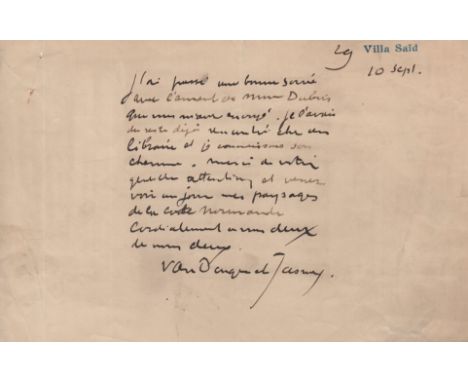 29 Villa Saïd
10 Sept.
J'ai passé une bonne soirée
avec l'amant de Mme Dubois
que vous m'avez envoyé. je l'avais
du reste déjà rencontré chez un
libraire et je connaissais son
charme. merci de votre
gentille attention et venez
voir un jour mes paysages
de la côte normande
Cordialement à vous deux
de nous deux.
Van Dongen et Jasmy.